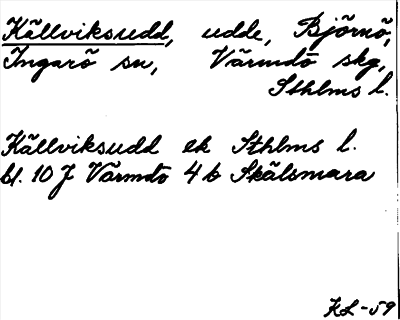 Källviksudd, udde, Björnö,
Ingarö sn, Värmdö skg,
Sthlms l.
Källviksudd ek Sthlms l.
bl. 10 J Värmdö 4 b Skälsmara
KL-59